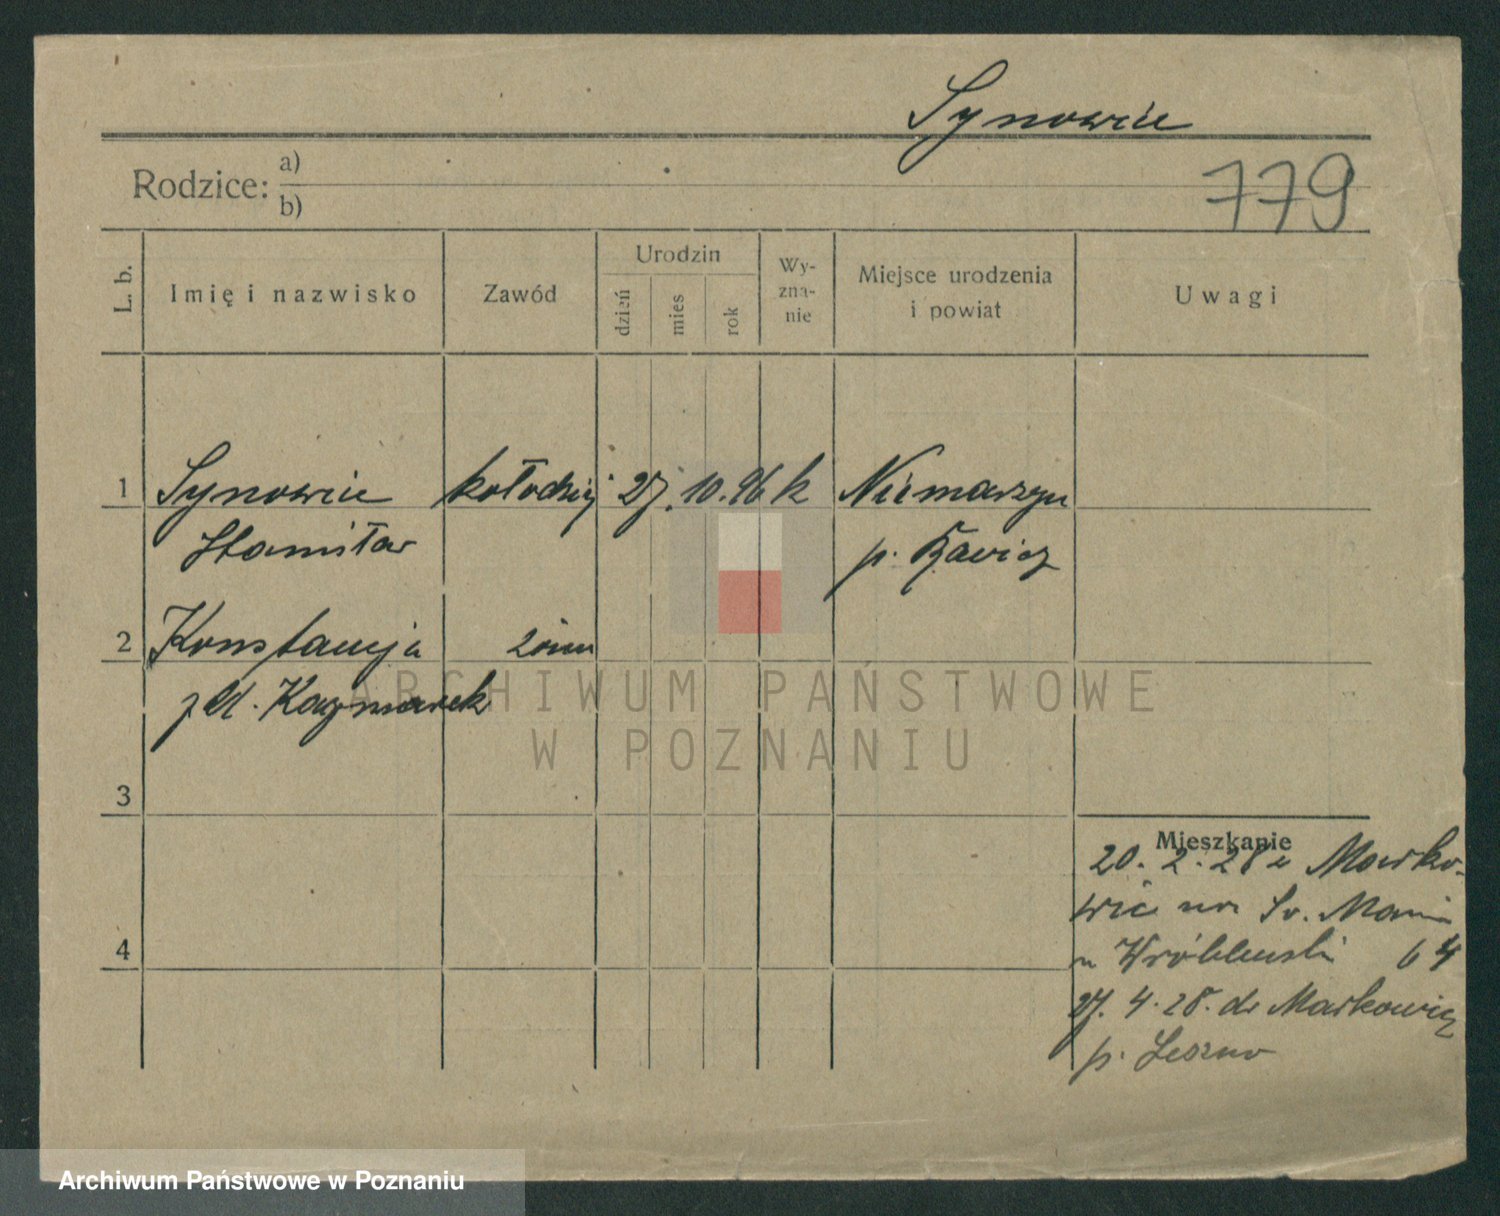 Synowiec
779
Rodzice: a)
b)
L. b.
Imię i nazwisko
Zawód
Urodzin
dzień
mies
rok
Wy-
zna-
nie
Miejsce urodzenia
i powiat
Uwagi
1 Synowiec kołodziej 27. 10. 96 k Niemarzyn
Stanisław p. Rawicz
2 Konstancja żona
zd. Kaczmarek
3
4
Mieszkanie
20. 2. 28 z Marko-
wic na Św.
u Wróblewski 64
27. 4. 28. do Markowic
p. Leszno
ARCHIWUM PAŃSTWOWE
W POZNANIU
Archiwum Państwowe w Poznaniu